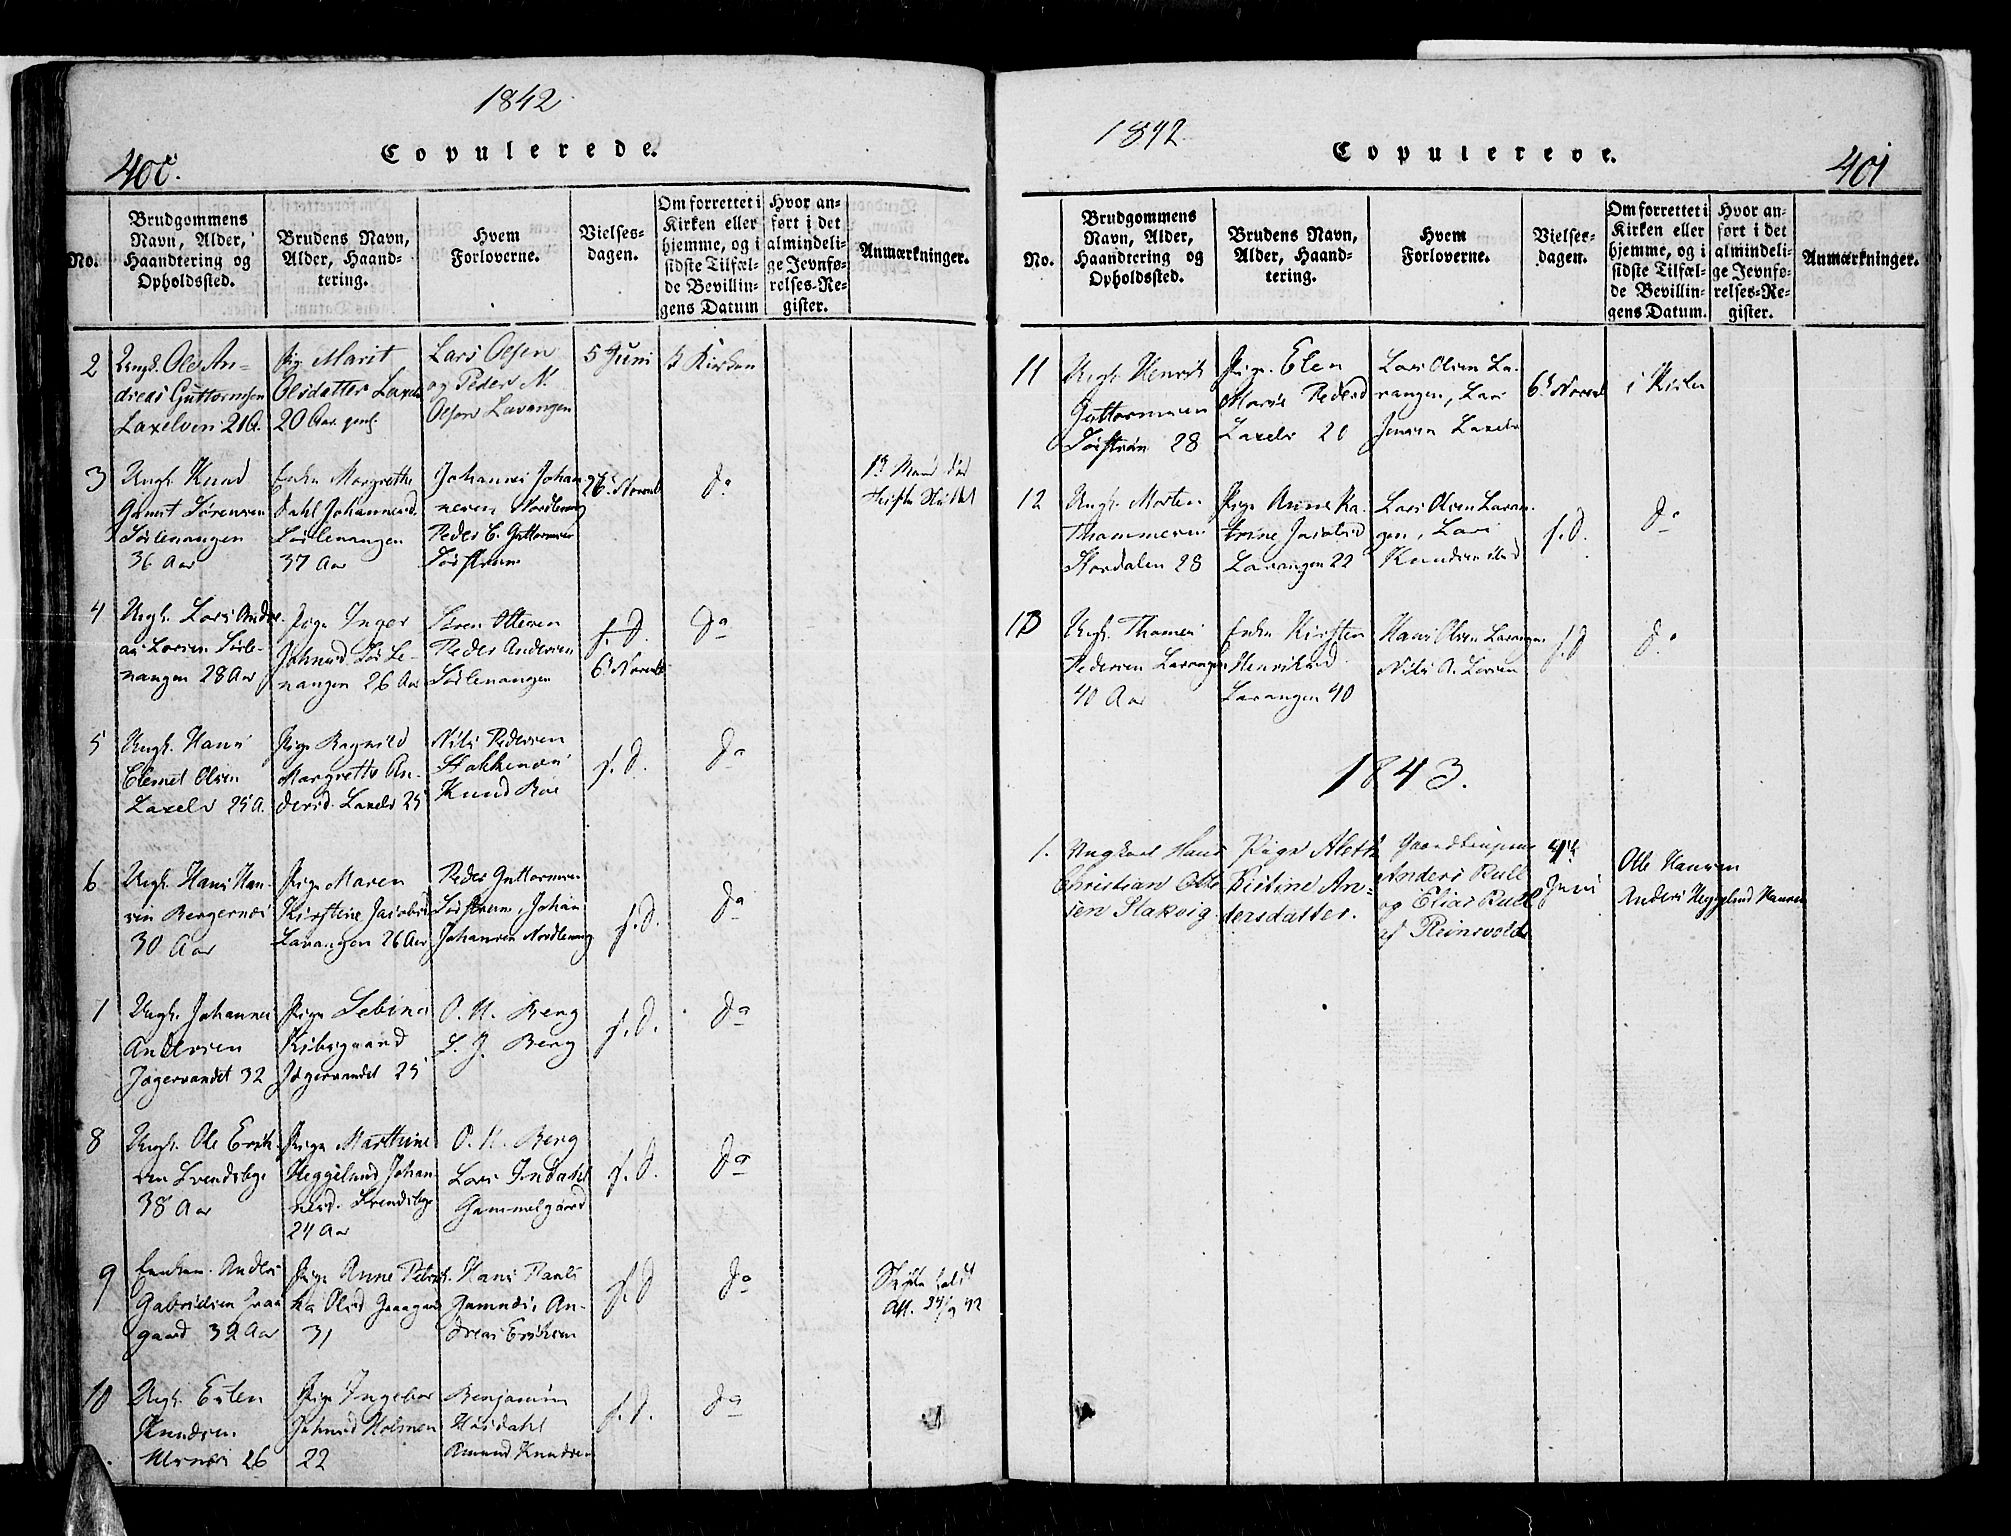 1842
Copulerede.
400.
No.
Brudgommens
Navn, Alder,
Haandtering og
Opholdssted.
Brudens Navn,
Alder, Haand-
tering.
Hvem
Forloverne.
Vielses-
dagen.
Om forrettet i
Kirken eller
hjemme, og i
sidste Tilfæl-
de Bevillin-
gens Datum
Hvor an-
ført i det
almindeli-
ge Jevnfø-
relses-Re-
gister.
Anmærkninger.
2
Ungk. Ole An-
dreas Guttormsen
Laxelven 21 A.
Pige Marit
Olsdatter Laxelv
20 Aar
Lars Olsen
og Peder N.
Olsen Lavangen
5 Juni
Kirken
3
Ungk. Knud
Sørensen
Sørlenangen
36 Aar
Enke Margrethe
Dahl Johannesd
Sørlenangen
37 Aar
Johannes Johan
nesen Nordlenang
Peder C. Guttormsen
Sørstrøm
26 Novemb
do
4
Ungk. Lars Andre
as Larsen Sørle-
nangen 28 Aar
Pige Inger
Johnsd Sør Le-
nangen 26 Aar
Søren Ottesen
Peder Andersen
Sørlenangen
s. D.
6 Novemb
do
5
Ungk. Hans
Clemet Olsen
Laxelv 25 A.
Pige Ragnild
Margrethe An-
dersd. Laxelv 25
Nils Pedersen
Stakkenæs
Knud Roe
s. D.
do
6
Ungk. Hans Han-
sen Bergernæs
30 Aar
Pige Maren
Kirstine Jacobsd
Lavangen 26 Aar
Peder Guttormsen
Sørstrøm, Johan
Johansen Nordlenang
s. D.
do
7
Ungk. Johannes
Andersen
Jægervandet 32
Pige Sebina
Kibsgaard
Jægervandet 25
O. H. Berg
J. Berg
s. D.
do
8
Ungk. Ole Erik
sen Svendsbye
38 Aar
Pige Marthine
Heggelund Johan
nesd. Svendsbye
24 Aar
O. H. Berg
Lars Indahl
Gammelgaard
s. D.
do
9
Enkem. Anders
Gabrielsen Graa
gaard 32 Aar
Pige Anne Petrik
ka Olsd Graagaard
31
Hans Pauls
Gamnæs, An-
dreas Eriksen
s. D
do
Skifte holdt
Att. 24/9 42
10
Ungk. Esten
Knudsen
Ulsnæs 26
Pige Ingebor
Johnsd Holmen
22
Benjamin
Hofsdahl
Amund Knudsen
s. D.
do
1842
Copulerede.
401
No.
Brudgommens
Navn, Alder,
Haandtering og
Opholdssted.
Brudens Navn,
Alder, Haand-
tering.
Hvem
Forloverne.
Vielses-
dagen.
Om forrettet i
Kirken eller
hjemme, og i
sidste Tilfæl-
de Bevillin-
gens Datum.
Hvor an-
ført i det
almindeli-
ge Jevnfø-
relses-Re-
gister.
Anmærkninger.
11
Ungk. Henrik
Guttormsen
Sørstrøm 28
Pige Elen
Marie Pedersd
Laxelv 20
Lars Olsen La-
vangen, Lars
Jensen Laxelv
6 Novemb
i Kirken
12
Ungk. Morten
Thommesen
Stordalen 28
Pige Anne Ka-
trine Jacobsd
Lavangen 22
Lars Olsen Lavan
gen, Lars
Knudsen ibid
s. D.
do
13
Ungk. Thomes
Pedersen Lavangen
40 Aar
Enke Kirsten
Henriksd
Lavangen 40
Hans Olsen Lavangen
Nils A. Larsen
s. D
do
1843.
1.
Ungkarl Hans
Christian Otte
sen Stakvig.
Pige Aleth
Kistine An-
dersdatter.
Anders Bull
og Elias Bull
af Reinsvold
4de
Juni
Ole Hansen
Anders Heggelund Hansen